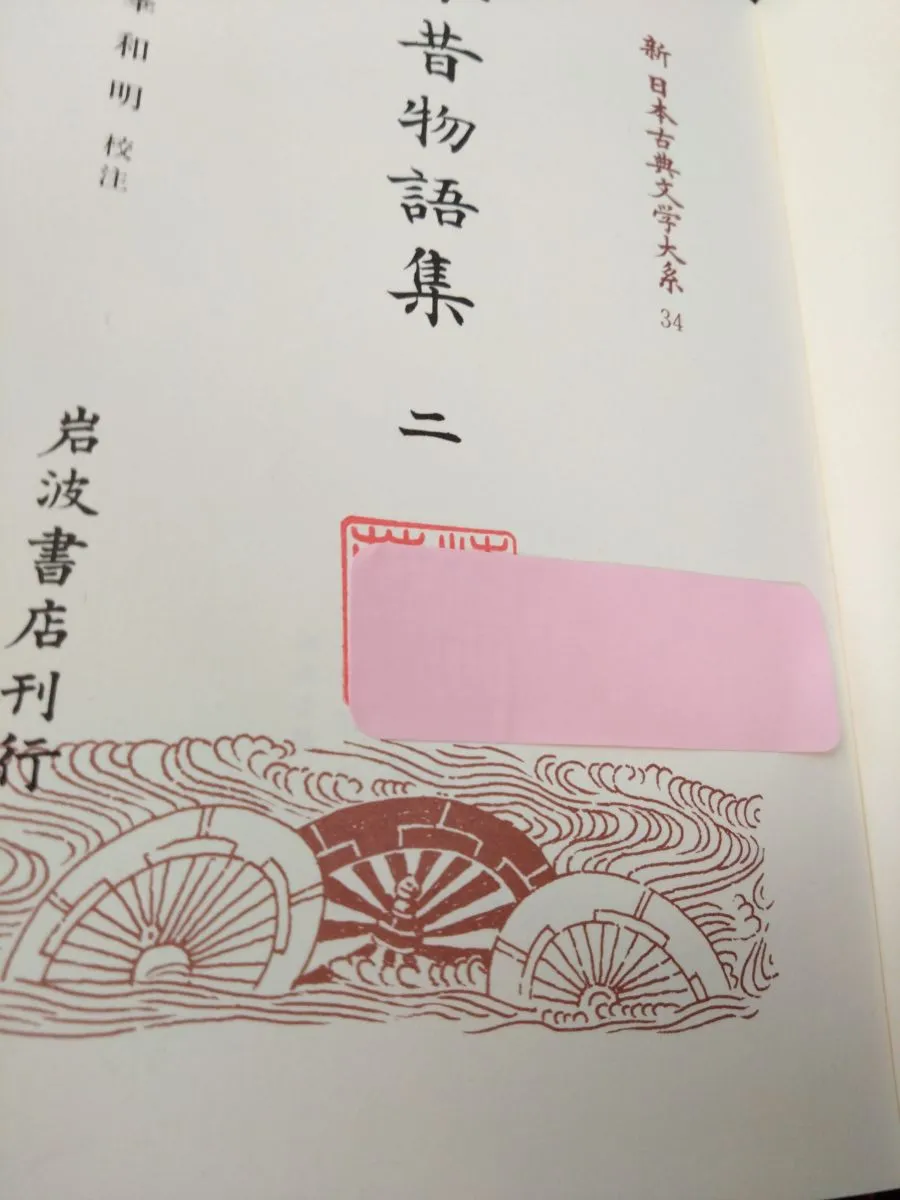 新 日本古典文学大系 34
昔物語集 二
和明 校注
岩波書店刊行